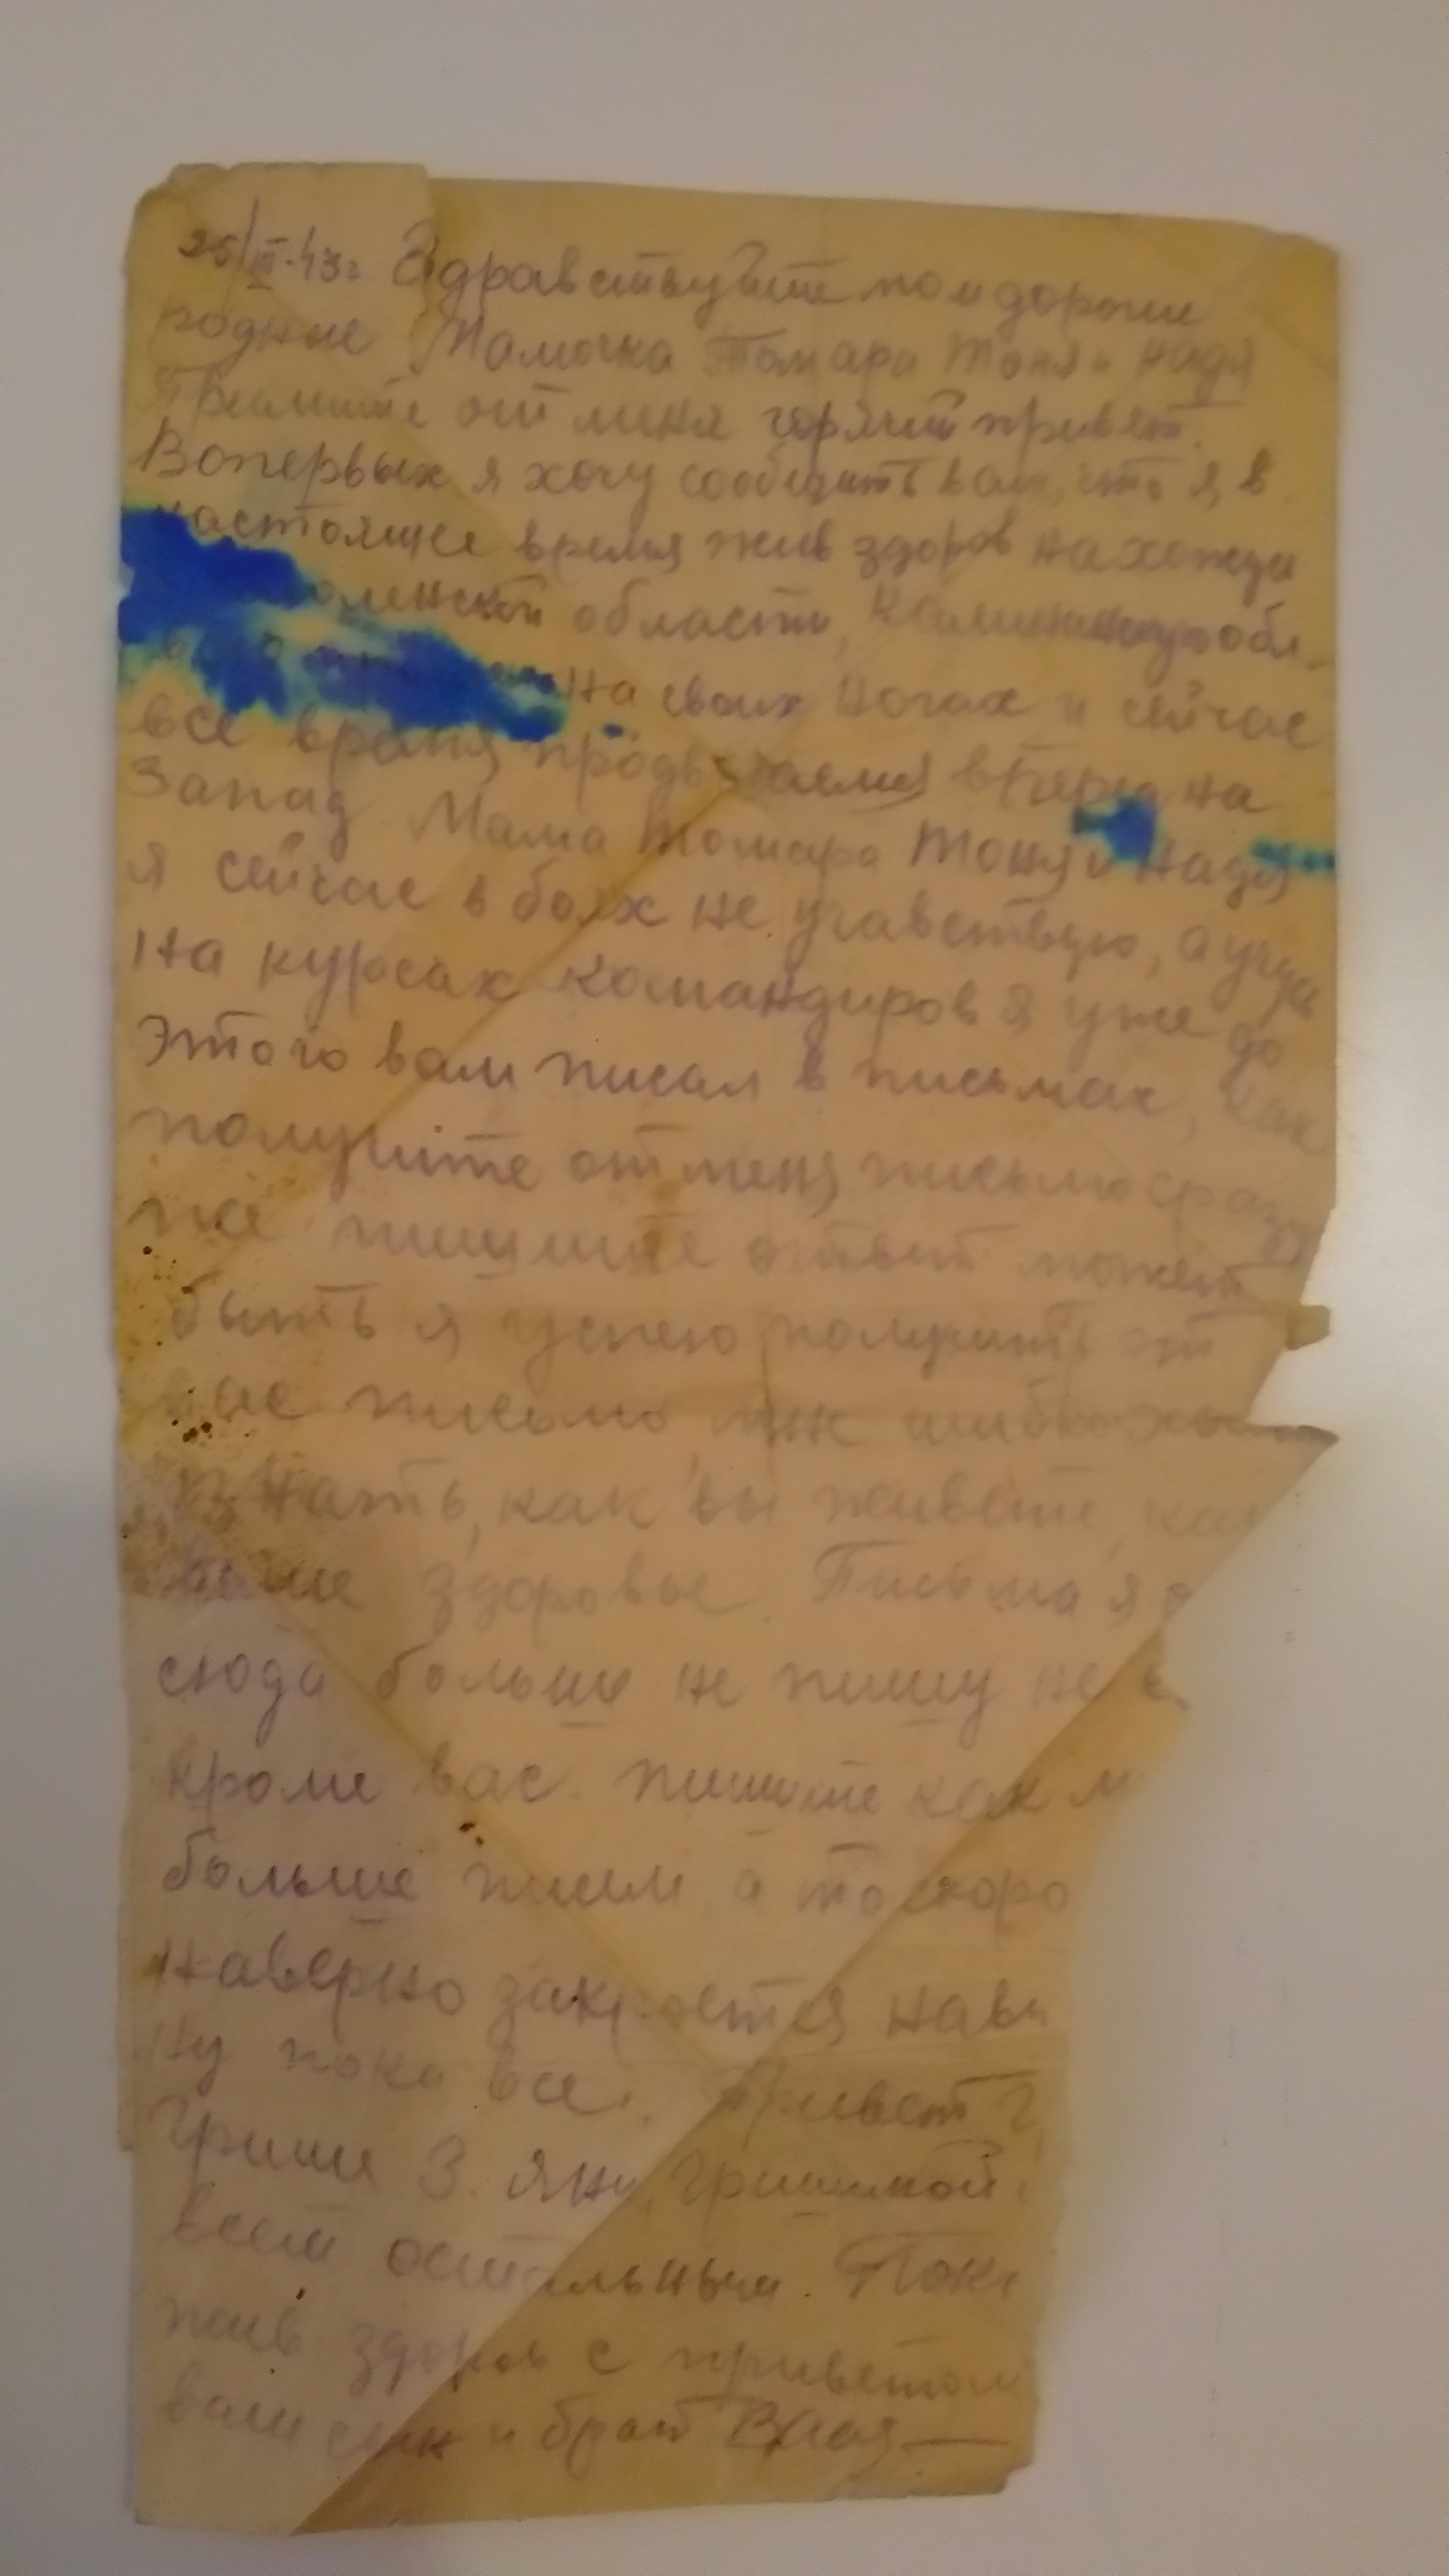 25/III-43г Здравствуйте мои дорогие
родные Мамочка Томара Тоня и Надя
Примите от меня горячий привет.
Вопервых я хочу сообщить вам, что я в
настоящее время жив здоров нахожусь
области, Калининскую обл.
на своих ногах и сейчас
все время продвигаемся вперед на
Запад Мама Томара Тоня и Надя
я сейчас в боях не учавствую, а учусь
на курсах командиров я уже до
этого вам писал в письмах, как
получите от меня письмо сразу
же пишите ответ может
быть я успею получить от
вас письмо шибко
знать, как вы живете, как
ваше здоровье. Письма я
сюда больше не пишу не
кроме вас. пишите как
больше писем, а то скоро
наверно закроется
Ну пока все. Привет
Грише З. Яни, Гришиной
всем остальным. Пока
жив здоров с приветом
ваш сын и брат Вася